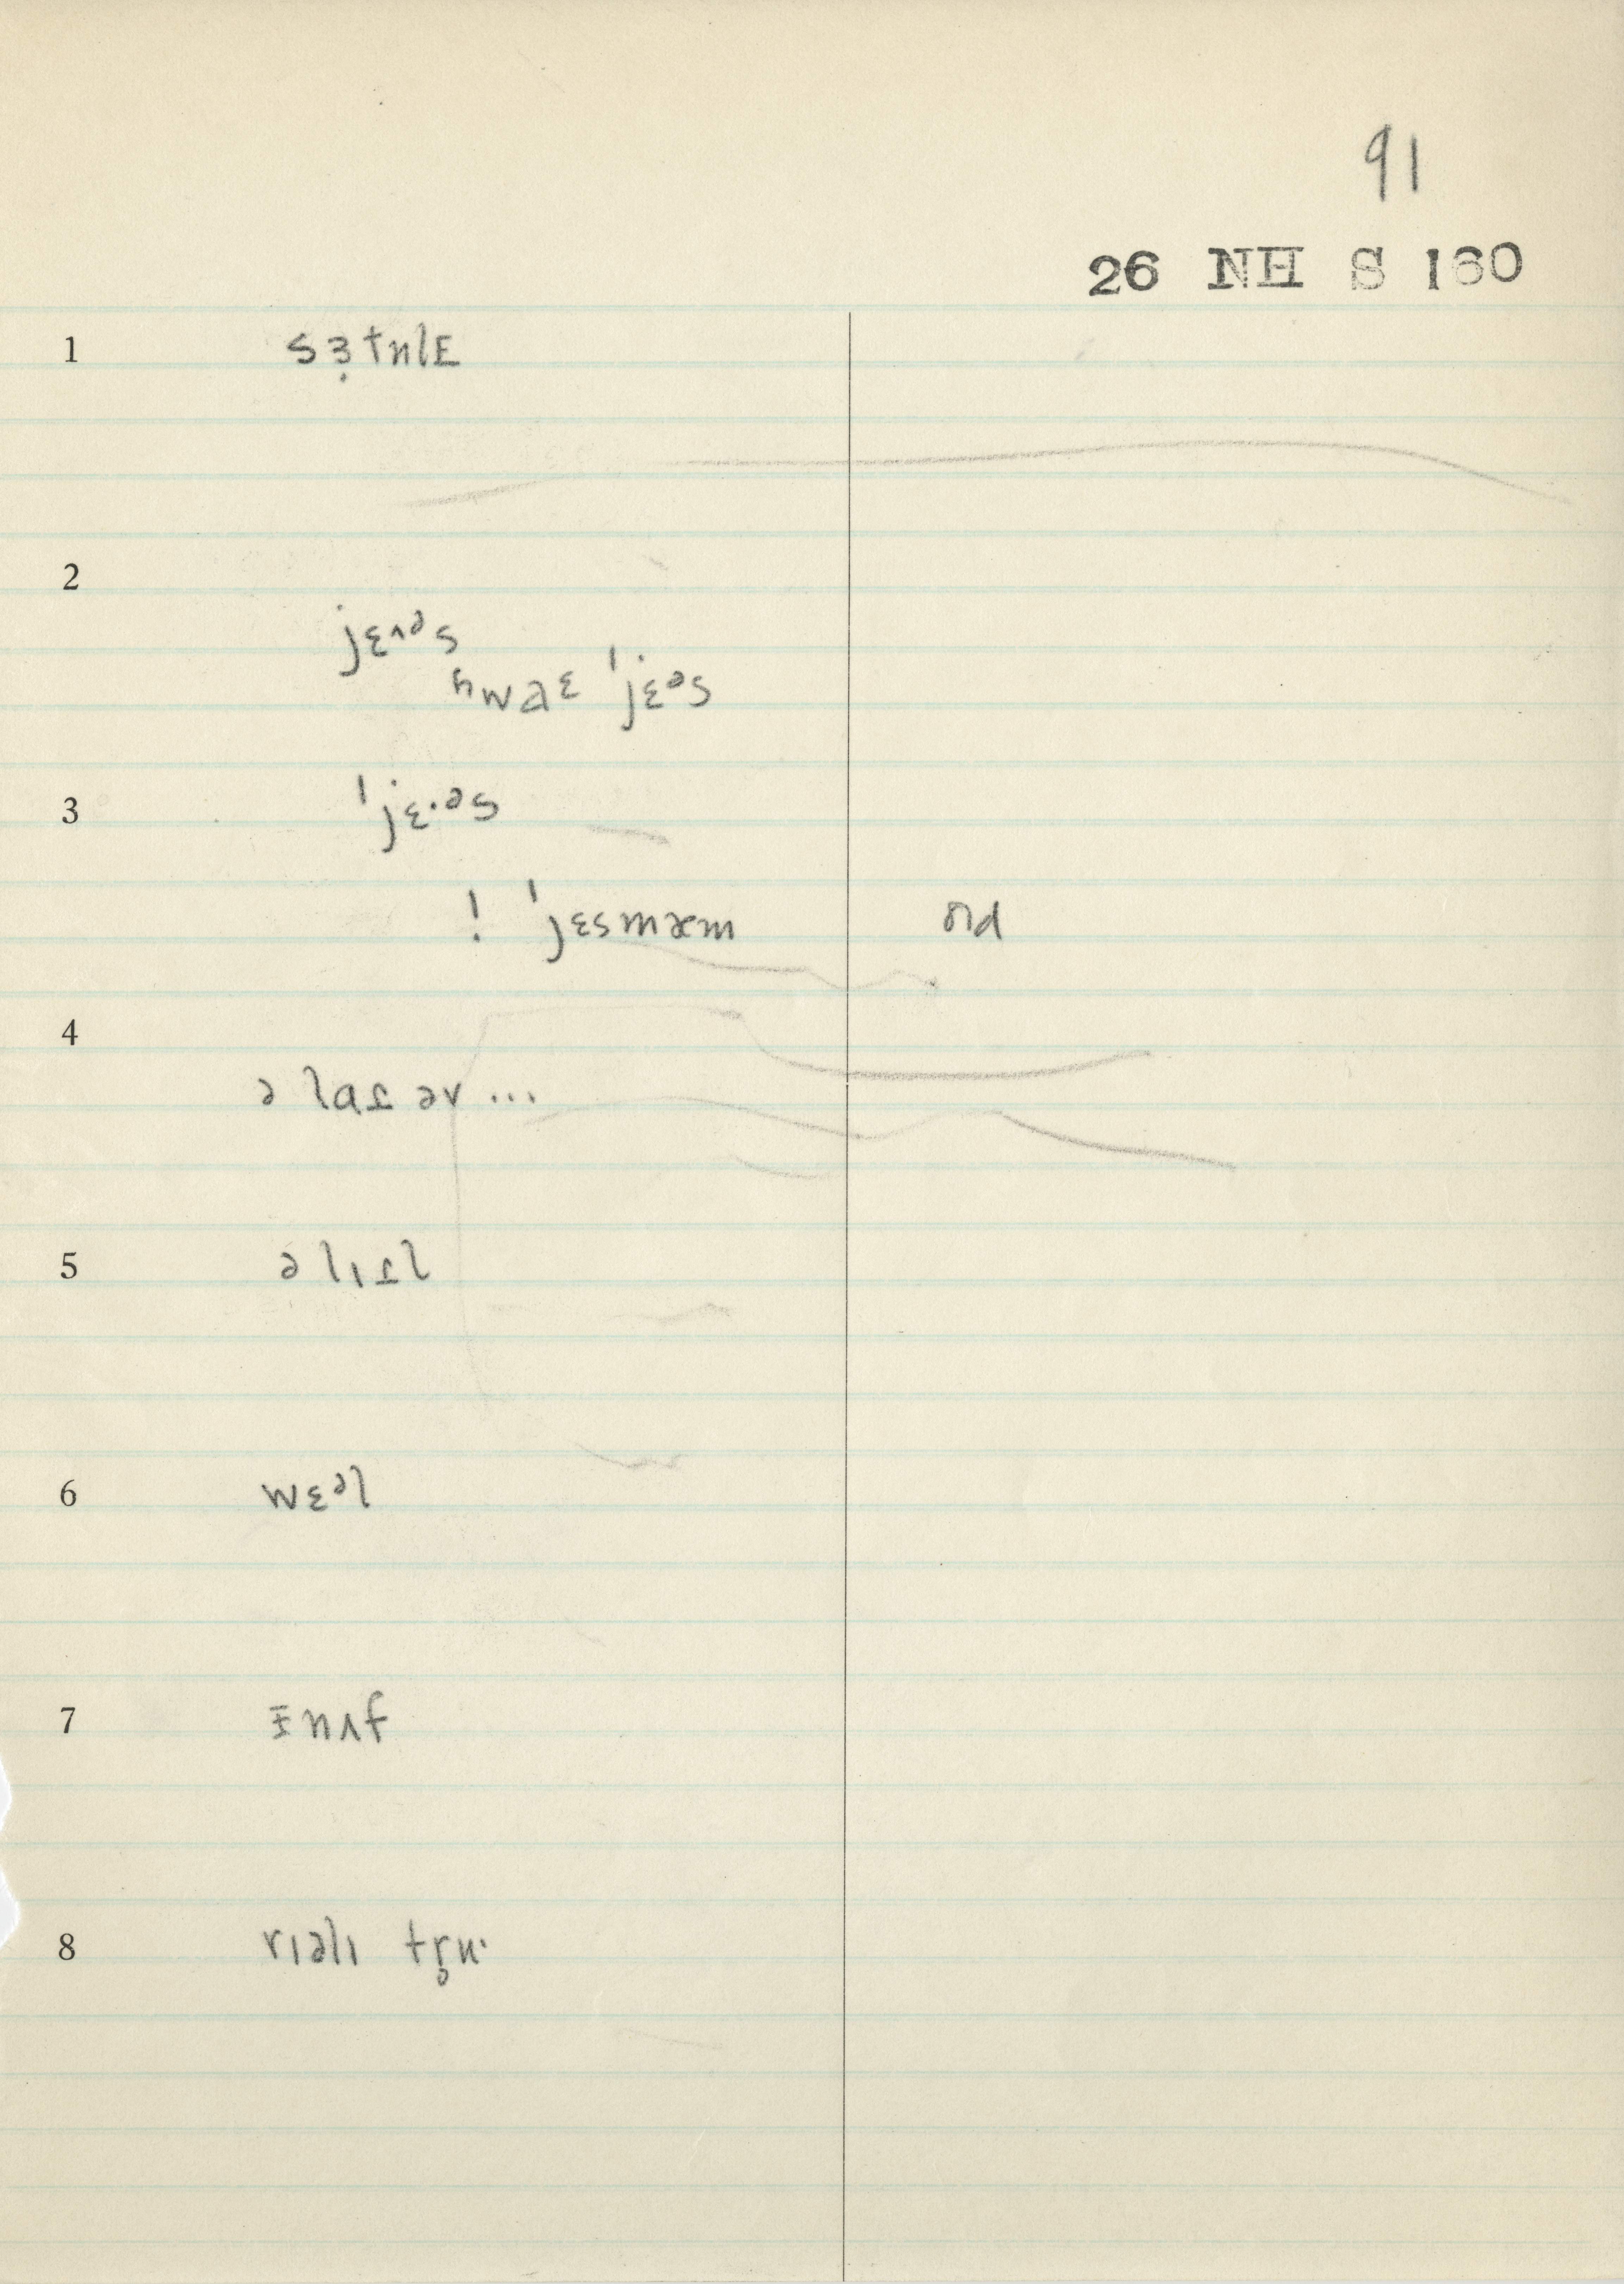 91
26 NH S 160
1 sɜ̣tnlE
2
jɛʌᵊs
ʮwaɛ ˈjɛᵊs
3 ˈjɛ·ᵊs
! ˈjɛsmæm
old
4
ə laɪ əv ...
5 ə lɪɪl
6 wɛᵊl
7 ɪ̄nʌf
8 rɪəlɪ tr̥u·